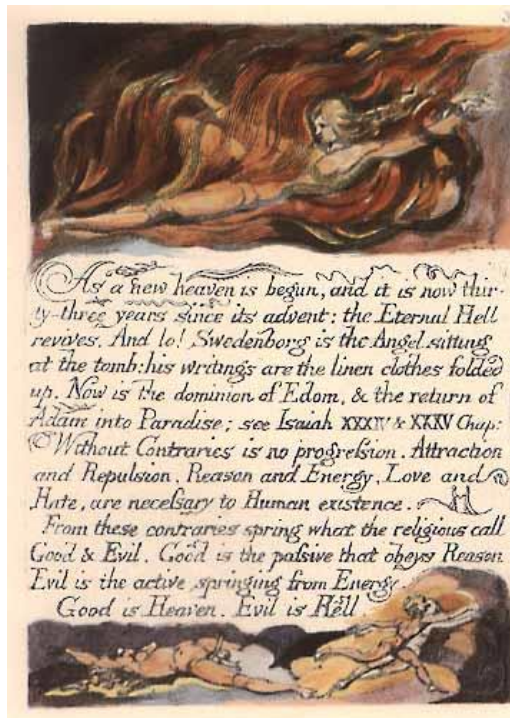 As a new heaven is begun, and it is now thir-
ty-three years since its advent: the Eternal Hell
revives. And lo! Swedenborg is the Angel sitting
at the tomb: his writings are the linen clothes folded
up. Now is the dominion of Edom, & the return of
Adam into Paradise; see Isaiah XXXIV & XXXV Chap:
Without Contraries is no progreſsion. Attraction
and Repulsion, Reason and Energy, Love and
Hate, are neceſsary to Human existence.
From these contraries spring what the religious call
Good & Evil. Good is the paſsive that obeys Reason
Evil is the active springing from Energy.
Good is Heaven. Evil is Hell